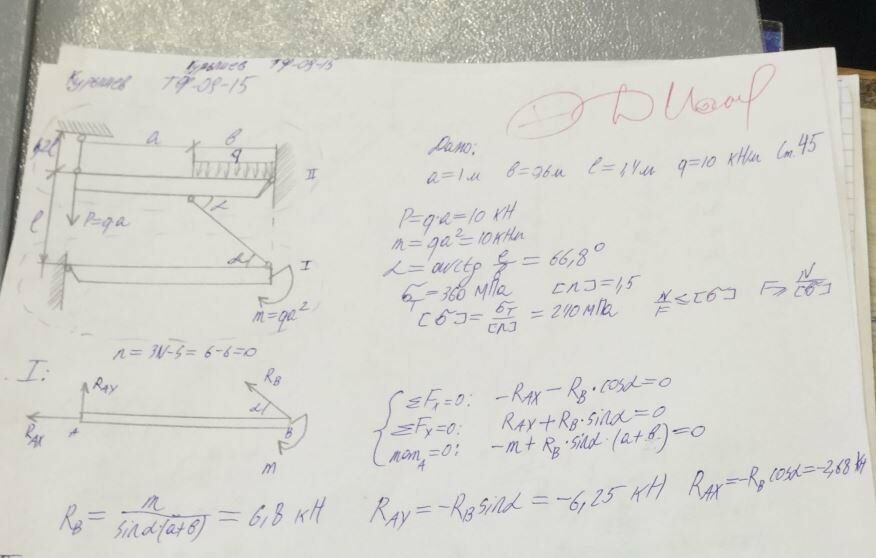 Курышев ТФ-09-15
Курышев ТФ-09-15
a
в
q
II
0,2l
α
P=qa
l
α
I
m=qa²
Дано:
a=1м в=0,6м l=1,4м q=10 кН/м Ст.45
P=q·a=10 кН
m=qa²=10кНм
α=arctg l/в = 66,8°
σт=360 МПа [n]=1,5
[σ]=σт/[n] = 240МПа N/F ≤[σ] F≥ N/[σ]
n = 3N-S = 6-6=0
I:
RAY
RB
α
RAX
A
B
m
ΣFx=0: -RAX - RB·cosα=0
ΣFx=0: RAY+RB·sinα=0
momA=0: -m+RB·sinα·(a+в)=0
RB = m/sinα(a+в) = 6,8 кН RAY=-RBsinα = -6,25 кН RAX=-RBcosα=-2,68 кН